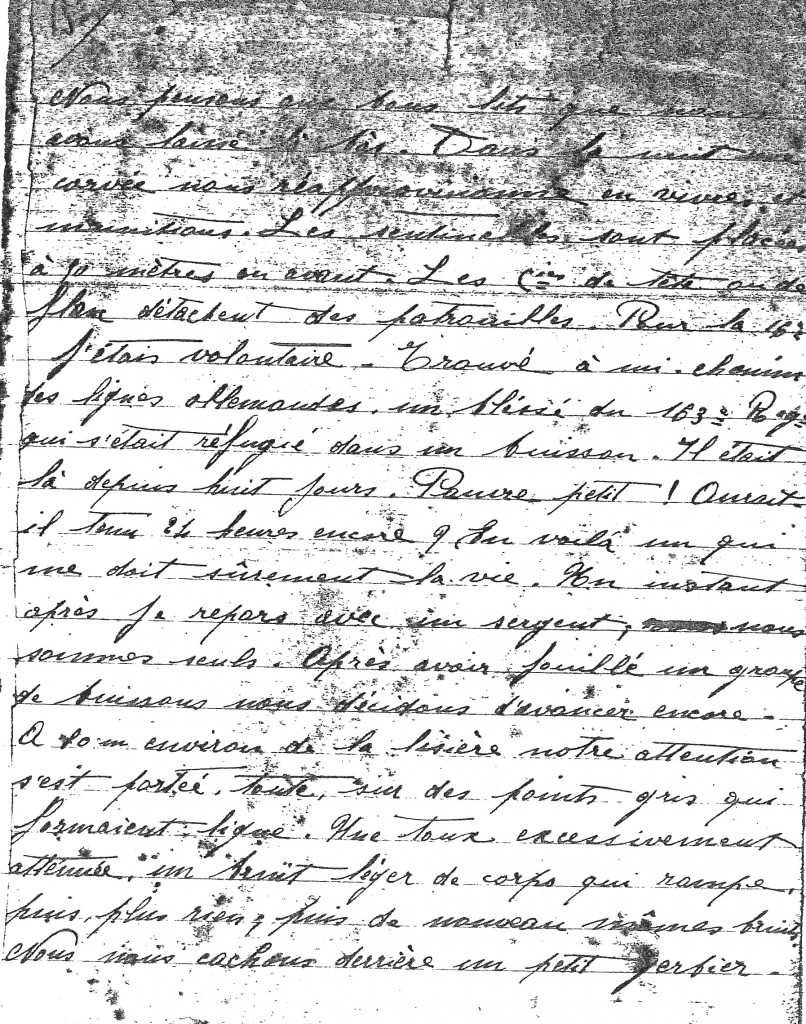 Nous pensons aux bons lits que nous
avons laissé là bas. Dans la nuit une
corvée nous réapprovisionne en vivres et
munitions. Les sentinelles sont placées
à 50 mètres en avant. Les Cies de tête ou de
flanc détachent des patrouilles. Pour la 16e
j'étais volontaire. Trouvé à mi-chemin
des lignes allemandes, un bléssé du 163e Regt
qui s'était réfugié dans un buisson. Il était
là depuis huit jours. Pauvre petit ! Aurait-
il tenu 24 heures encore ? En voilà un qui
me doit sûrement la vie. Un instant
après je repars avec un sergent, nous
sommes seuls. Après avoir fouillé un groupe
de buissons nous décidons d'avancer encore.
A 80 m environ de la lisière notre attention
s'est portée, toute, sur des points gris qui
formaient ligne. Une toux excessivement
atténuée, un bruit léger de corps qui rampe,
puis, plus rien, puis de nouveau mêmes bruits
Nous nous cachons derrière un petit gerbier.